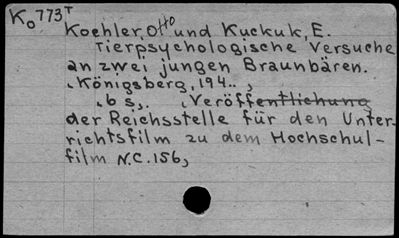 Ko 773T
Koehler, Otto und Kuckuk, E.
Tierpsychologische Versuche
an zwei jungen Braunbären.
Königsberg, 194.. ,
6 s,. Veröffentlichung
der Reichsstelle für den Unter-
richtsfilm zu dem Hochschul-
film N.C.156,